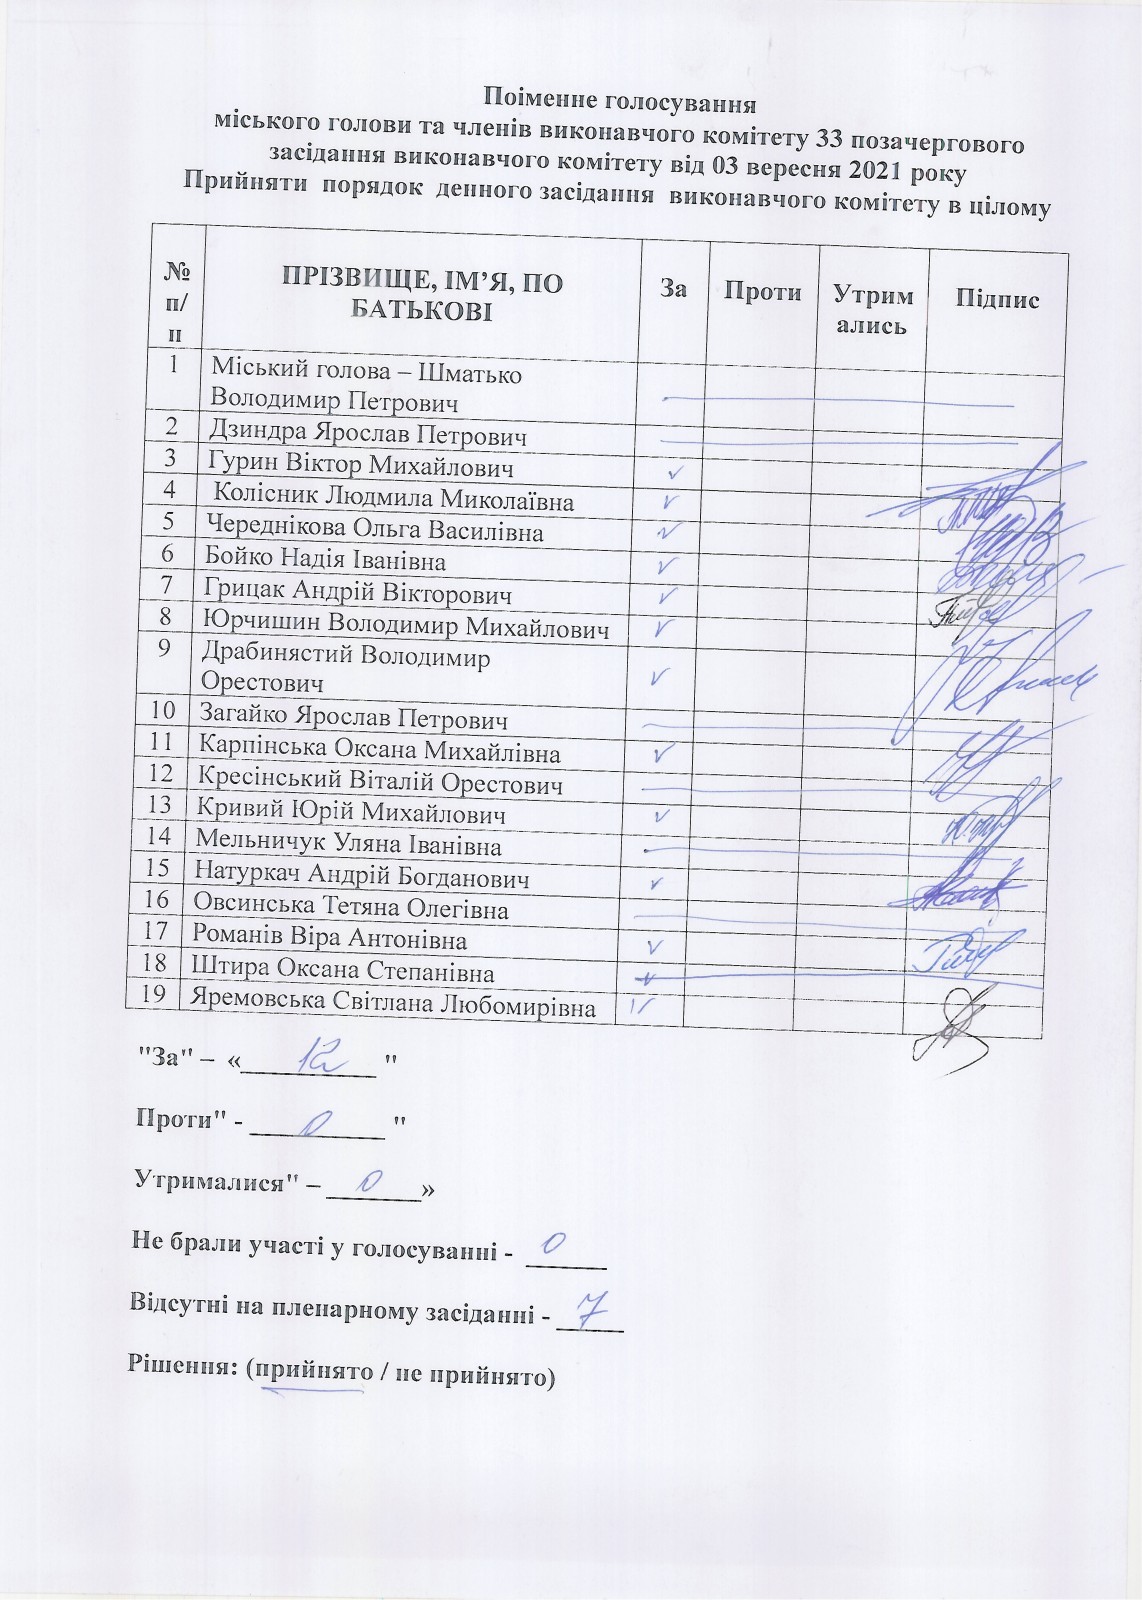 Поіменне голосування
міського голови та членів виконавчого комітету 33 позачергового
засідання виконавчого комітету від 03 вересня 2021 року
Прийняти порядок денного засідання виконавчого комітету в цілому
№ п/п ПРІЗВИЩЕ, ІМ’Я, ПО БАТЬКОВІ За Проти Утрим ались Підпис
1 Міський голова – Шматько
Володимир Петрович
2 Дзиндра Ярослав Петрович
3 Гурин Віктор Михайлович ✓
4 Колісник Людмила Миколаївна ✓
5 Череднікова Ольга Василівна ✓
6 Бойко Надія Іванівна ✓
7 Грицак Андрій Вікторович ✓
8 Юрчишин Володимир Михайлович ✓
9 Драбинястий Володимир
Орестович ✓
10 Загайко Ярослав Петрович
11 Карпінська Оксана Михайлівна ✓
12 Кресінський Віталій Орестович
13 Кривий Юрій Михайлович ✓
14 Мельничук Уляна Іванівна
15 Натуркач Андрій Богданович ✓
16 Овсинська Тетяна Олегівна
17 Романів Віра Антонівна ✓
18 Штира Оксана Степанівна
19 Яремовська Світлана Любомирівна ✓
"За" – «__________ 12 "
Проти" - __________ 0 "
Утрималися" – _______ 0 »
Не брали участі у голосуванні - 0
Відсутні на пленарному засіданні - 7
Рішення: (прийнято / не прийнято)